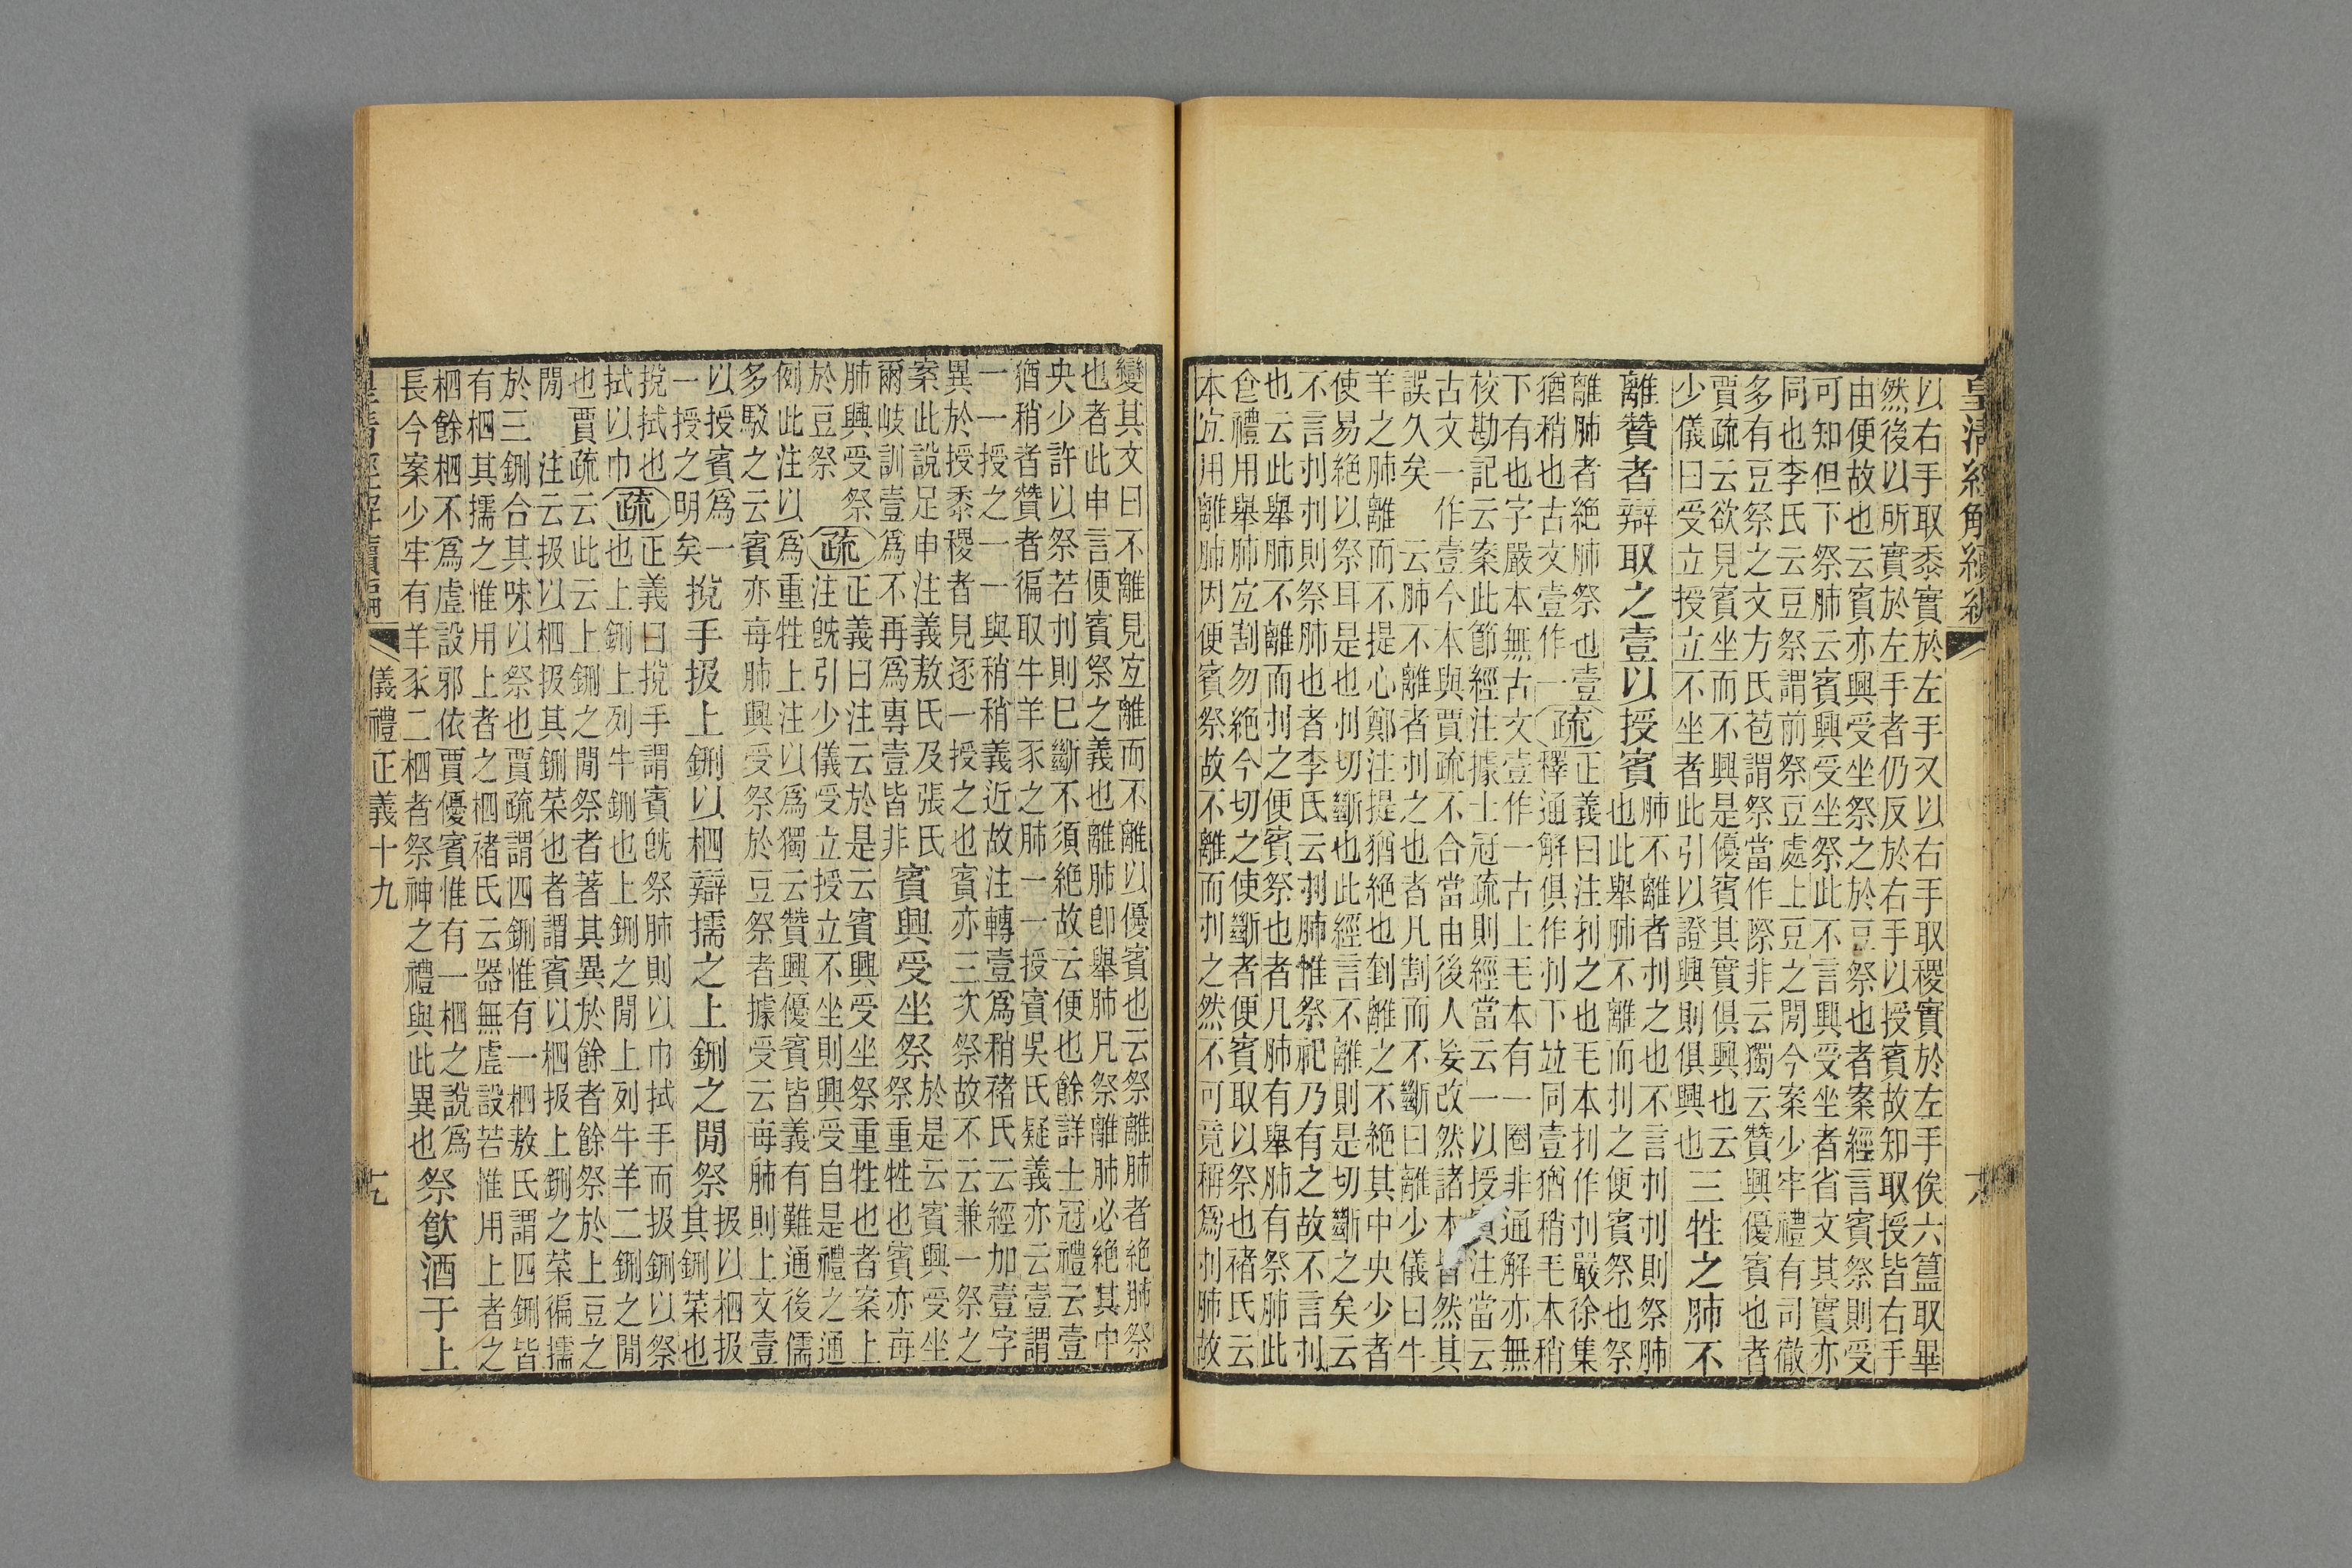 皇清經解續編
以右手取黍實於左手又以右手取稷實於左手俟六簋取畢
然後以所實於左手者仍反於右手以授賓故知取授皆右手
由便故也云賓亦興受坐祭之於豆祭也者案經言賓祭則受
可知但下祭肺云賓興受坐祭此不言興受坐者省文其實亦
同也李氏云豆祭謂前祭豆處上豆之閒今案少牢禮有司徹
多有豆祭之文方氏苞謂祭當作際非云獨云贊興優賓也者
賈疏云欲見賓坐而不興是優賓其實俱興也云
少儀曰受立授立不坐者此引以證興則俱興也
三牲之肺不
離贊者辯取之壹以授賓
肺不離者刌之也不言刌刌則祭肺
也此舉肺不離而刌之便賓祭也祭
離肺者絶肺祭也壹
猶稍也古文壹作一
疏
正義曰注刌之也毛本刌作刌嚴徐集
釋通解俱作刌下竝同壹猶稍毛本稍
下有也字嚴本無古文壹作一古上毛本有一圈非通解亦無
校勘記云案此節經注據士冠疏則經當云一以授賓注當云
古文一作壹今本與賈疏不合當由後人妄改然諸本皆然其
誤久矣　云肺不離者刌之也者凡割而不斷曰離少儀曰牛
羊之肺離而不提心鄭注提猶絶也刲離之不絶其中央少者
使易絶以祭耳是也刌切斷也此經言不離則是切斷之矣云
不言刌刌則祭肺也者李氏云刌肺惟祭祀乃有之故不言刌
也云此舉肺不離而刌之便賓祭也者凡肺有舉肺有祭肺此
食禮用舉肺宜割勿絶今切之使斷者便賓取以祭也褚氏云
本宜用離肺因便賓祭故不離而刌之然不可竟稱爲刌肺故
變其文曰不離見宜離而不離以優賓也云祭離肺者絶肺祭
也者此申言便賓祭之義也離肺卽舉肺凡祭離肺必絶其中
央少許以祭若刌則已斷不須絶故云便也餘詳士冠禮云壹
猶稍者贊者徧取牛羊豕之肺一一授賓吳氏疑義亦云壹謂
一一授之一一與稍稍義近故注轉壹爲稍褚氏云經加壹字
異於授黍稷者見逐一授之也賓亦三次祭故不云兼一祭之
案此說足申注義敖氏及張氏
爾岐訓壹爲不再爲專壹皆非
賓興受坐祭
於是云賓興受坐
祭重牲也賓亦每
肺興受祭
於豆祭
疏
正義曰注云於是云賓興受坐祭重牲也者案上
注旣引少儀受立授立不坐則興受自是禮之通
例此注以爲重牲上注以爲獨云贊興優賓皆義有難通後儒
多駁之云賓亦每肺興受祭於豆祭者據受云每肺則上文壹
以授賓爲一
一授之明矣
挩手扱上鉶以柶辯擩之上鉶之閒祭
扱以柶扱
其鉶菜也
挩拭也
拭以巾
疏
正義曰挩手謂賓旣祭肺則以巾拭手而扱鉶以祭
也上鉶上列牛鉶也上鉶之閒上列牛羊二鉶之閒
也賈疏云此云上鉶之閒祭者著其異於餘者餘祭於上豆之
閒　注云扱以柶扱其鉶菜也者謂賓以柶扱上鉶之菜徧擩
於三鉶合其味以祭也賈疏謂四鉶惟有一柶敖氏謂四鉶皆
有柶其擩之惟用上者之柶褚氏云器無虛設若惟用上者之
柶餘柶不爲虛設邪依賈優賓惟有一柶之說爲
長今案少牢有羊豕二柶者祭神之禮與此異也
祭飮酒于上
皇清經解續編
儀禮正義十九